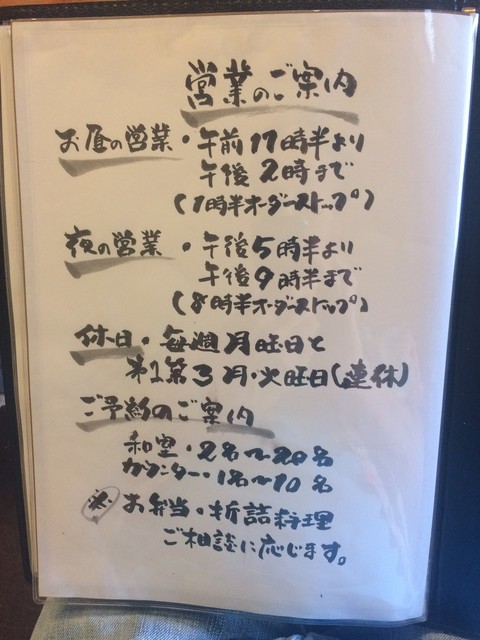 営業のご案内
お昼の営業・午前11時半より
午後2時まで
(1時半オーダーストップ)
夜の営業・午後5時半より
午後9時半まで
(8時半オーダーストップ)
休日・毎週月曜日と
第1第3月・火曜日(連休)
ご予約のご案内
和室・2名〜20名
カウンター・1名〜10名
お弁当・折詰料理
ご相談に応じます。